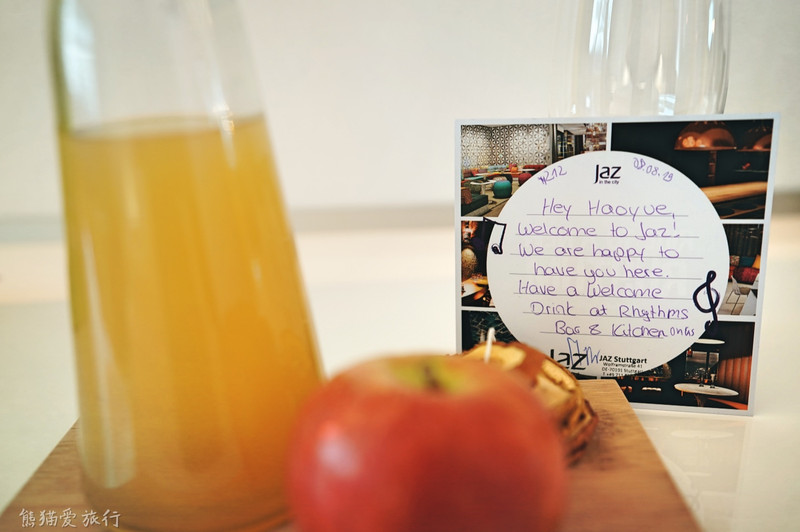 #212
Jaz
in the city
08.08.19
Hey Haoyue,
Welcome to Jaz!
We are happy to
have you here.
Have a Welcome
Drink at Rhythms
Bar & Kitchen on us
Jaz
JAZ Stuttgart
Wolframstraße 41
DE-70191 Stuttgart
熊猫爱旅行